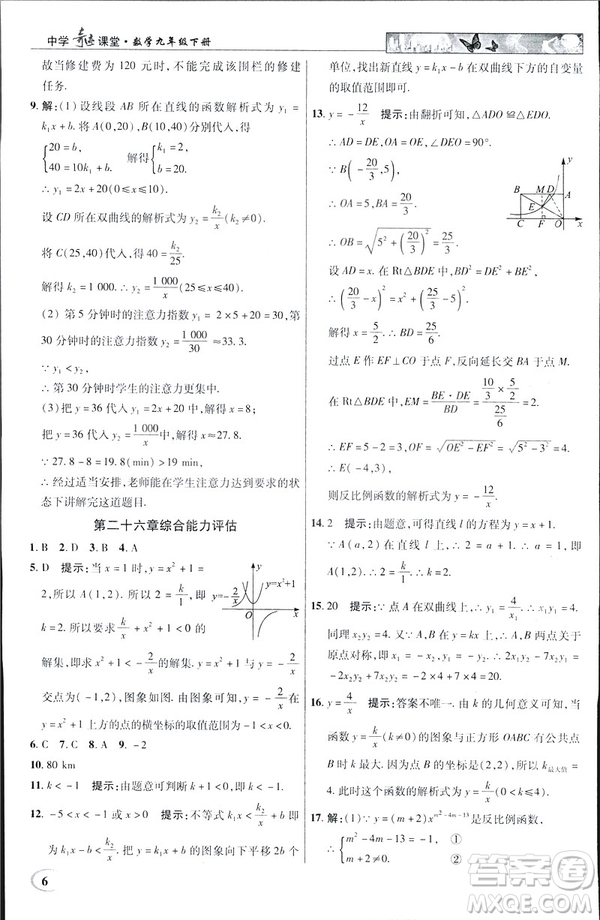 中学奇迹课堂·数学九年级下册
故当修建费为 120 元时,不能完成该围栏的修建
任务.
9. 解:(1) 设线段 AB 所在直线的函数解析式为 y₁
= k₁x + b. 将 A(0,20),B(10,40)分别代入,得
{20 = b, 40 = 10k₁ + b, 解得 {k₁ = 2, b = 20.
∴ y₁ = 2x + 20.
设 CD 所在双曲线的解析式为 y₂ = k₂/x.
将 C(25,40)代入,得 40 = k₂/25.
解得 k₂ = 1 000. ∴ y₂ = 1 000/x (25≤x≤40).
(2) 第 5 分钟时的注意力 y₁ = 2×5 + 20 = 30,
第 30 分钟时的注意力 y₂ = 1 000/30 ≈ 33.3.
∴ 第 30 分钟时学生的注意力更集中.
(3) 把 y = 36 代入 y₁ = 2x + 20,得 x = 8.
把 y = 36 代入 y₂ = 1 000/x,得 x≈27.8.
∵ 27.8 - 8 = 19.8(分钟) > 19 分钟,
∴ 经过适当安排,老师能在学生注意力达到所需状
态下讲解完这道题目.
第二十六章综合能力评估
1. B 2. D 3. B 4. A
5. D 提示:当 x = 1 时,y = x² + 1
= 2,所以 A(1,2). 把 A(1,2)代
入 y = k/x,得 2 = k/1,解得
k = 2. 所以要求 x² + 1 < -2/x
的解集,即求 y = x² + 1 < y = -2/x 的解集. 两函数
交点为(-1,2),图象如图. 由图象可知 y = -2/x 在
y = x² + 1 上方的点的横坐标的取值范围是 -1 < x < 0.
y=x²+1
6. C 7. C 8. A 9. -2
10. 80 km
11. k < -1 提示:由题意可判断 k + 1 < 0,所以 k < -1.
12. -5 < x < -1 或 x > 0 提示:不等式 k₁x < k₂/x + b 即
为 k₁x - b < k₂/x,y = k₁x + b 的图象向下平移 2b 个
6
单位,找出新直线 y = k₁x - b 在双曲线下方的自变量
的取值范围即可.
13. y = -12/x 提示:由翻折可知,△ADO≌△EDO.
∴ AD = DE,OA = OE,∠OAD = ∠OED = 90°.
∵ B(-20/3,5),
∴ OA = 5,AB = 20/3.
∴ OB = √(5² + (20/3)²) = 25/3.
B M D A
C F O x
E
y
设 AD = x,在 Rt△BDE 中,BE² + DE² = BD²,
∴ (25/3 - 5)² + x² = (20/3 - x)².
解得 x = 5/2. ∴ BD = 25/6.
过点 E 作 EF⊥x 轴于点 F,反向延长交 BA 于点 M.
在 Rt△BDE 中,EM = BE·DE/BD = (10/3 × 5/2)/(25/6) = 2.
∴ EF = 5 - 2 = 3. ∴ OF = √(OE² - EF²) = √(5² - 3²) = 4.
∴ E(-4,3).
则反比例函数的解析式为 y = -12/x.
14. 2 提示:由题意,可知直线 l 的方程为 y = x + 1.
∵ A(a,2)在直线 l 上,∴ 2 = a + 1. ∴ a = 1.
∴ A(1,2). ∴ 2 = k/1. ∴ k = 2.
15. 20 提示:∵ 点 A 在双曲线上,∴ y₁ = 4/x₁. ∴ x₁y₁ = 4.
同理 x₂y₂ = 4. ∵ A,B 均在 y = kx 上,∴ 两点关于
原点对称,∴ x₁ = -x₂,y₁ = -y₂. ∴ 2x₁y₂ - 7x₂y₁ =
-2x₁y₁ + 7x₂y₂ = -2×4 + 7×4 = 20.
16. y = 4/x 提示:答案不唯一. 由 k 的几何意义可知,当
反比例函数的图象与正方形 OABC 有公共点时,
k 的最大值应为过点 B 的坐标为(2,2),所以 k最大值 =
4. 所以反比例函数的解析式可以为 y = 4/x.
17. 解:∵ y = (m + 2)x^(m²-4m-13) 是反比例函数,
∴ {m² - 4m - 13 = -1, ①
m + 2≠0. ②